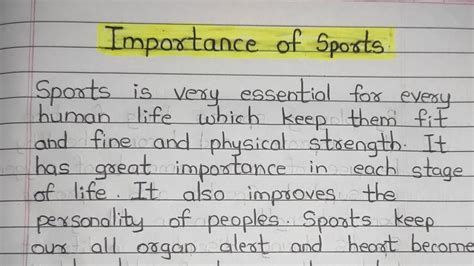 Importance of Sports
Sports is very essential for every
human life which keep them fit
and fine and physical strength. It
has great importance in each stage
of life. It also improves the
personality of peoples. Sports keep
our all organ alert and heart become